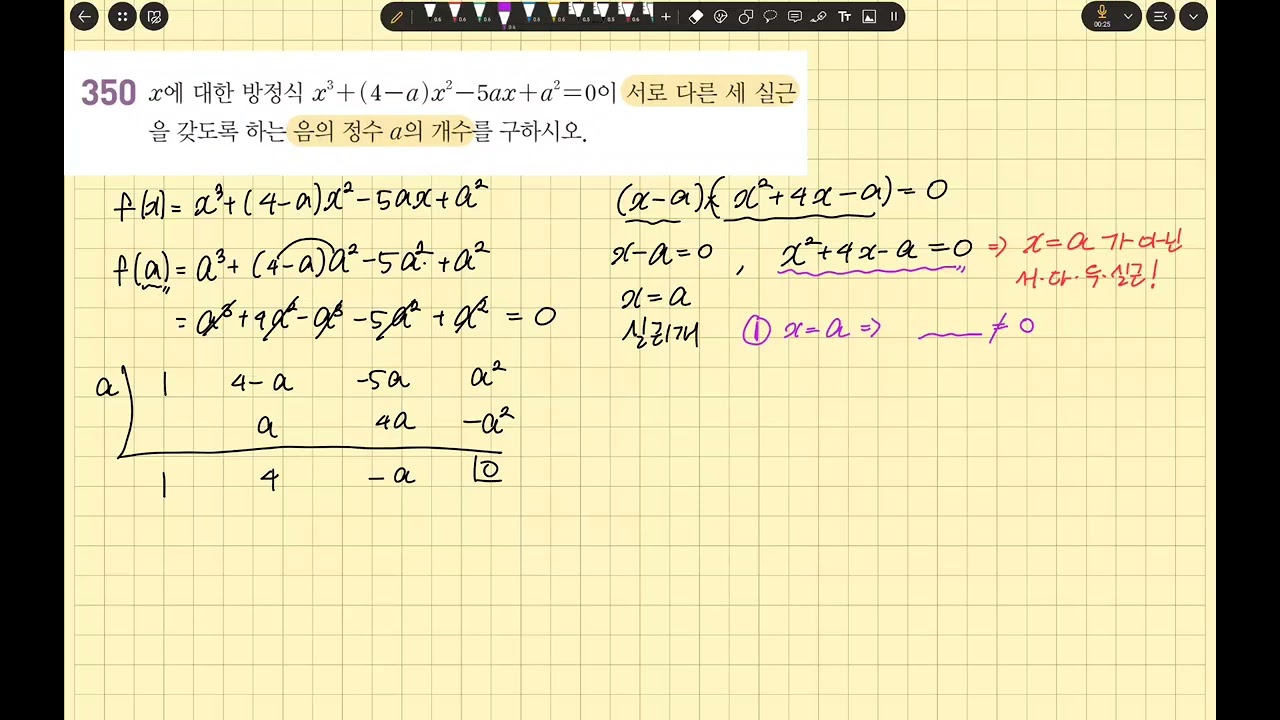 00:25
350 x에 대한 방정식 x³+(4-a)x²-5ax+a²=0이 서로 다른 세 실근
을 갖도록 하는 음의 정수 a의 개수를 구하시오.
f(x)= x³+(4-a)x²-5ax+a²
f(a)= a³+(4-a)a²-5a²+a²
= a³+4a²-a³-5a²+a² = 0
a 1 4-a -5a a²
a 4a -a²
1 4 -a 0
(x-a)(x²+4x-a)=0
x-a=0 , x²+4x-a=0 ⇒ x=a가 아닌
서·다·두·실근!
x=a
실근1개
① x=a ⇒ ≠ 0